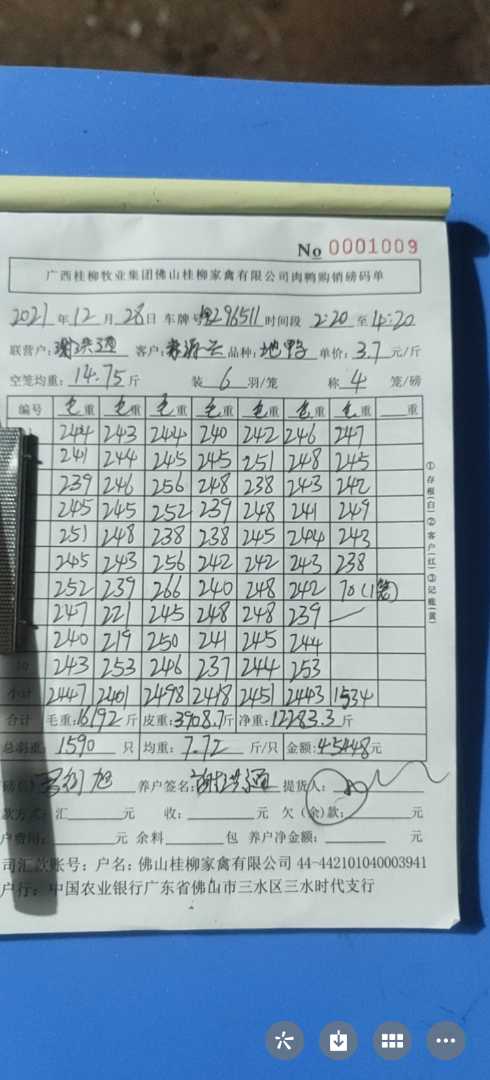 No 0001009
广西桂柳牧业集团佛山桂柳家禽有限公司肉鸭购销磅码单
2021年12月28日 车牌号 296511 时间段 2:20 至 4:20
联营户: 谢洪通 客户: 品种: 地鸭 单价: 3.7 元/斤
空笼均重: 14.75 斤 装 6 羽/笼 称 4 笼/磅
编号 毛重 毛重 毛重 毛重 毛重 毛重 毛重 重
244 243 244 240 242 246 247
241 244 245 245 251 248 245
239 246 256 248 238 243 242
245 245 252 239 248 241 249
251 248 238 238 245 244 243
245 243 256 242 242 243 238
252 239 266 240 248 242 70(1笼)
247 221 245 248 248 239
240 219 250 241 245 244
10 243 253 246 237 244 253
小计 2447 2401 2498 2418 2451 2443 1534
合计 毛重: 16192 斤 皮重: 3908.7 斤 净重: 12283.3 斤
总羽重: 1590 只 均重: 7.72 斤/只 金额: 45448 元
养户签名: 谢洪通 提货人:
款方式: 汇 元 收: 元 欠(余)款: 元
户费用: 元 余料 包 养户净金额: 元
司汇款账号: 户名: 佛山桂柳家禽有限公司 44-442101040003941
户行: 中国农业银行广东省佛山市三水区三水时代支行
①存根(白)②客户(红)③记账(黄)